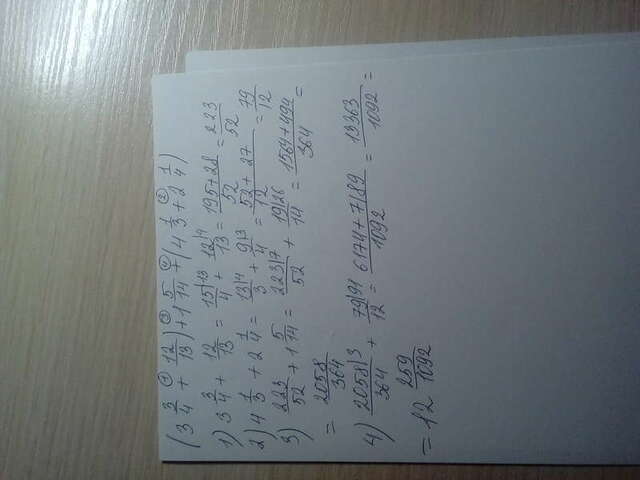 (3 3/4 + 12/13) + 1 5/14 + (4 1/3 + 2 1/4)
1) 3 3/4 + 12/13 = 15/4 + 12/13 = 195+28/52 = 223/52
2) 4 1/3 + 2 1/4 = 13/3 + 9/4 = 52+27/12 = 79/12
3) 223/52 + 1 5/14 = 223/52 + 19/14 = 1564+494/364 =
= 2058/364
4) 2058/364 + 79/12 = 6174+7189/1092 = 13363/1092 =
= 12 259/1092